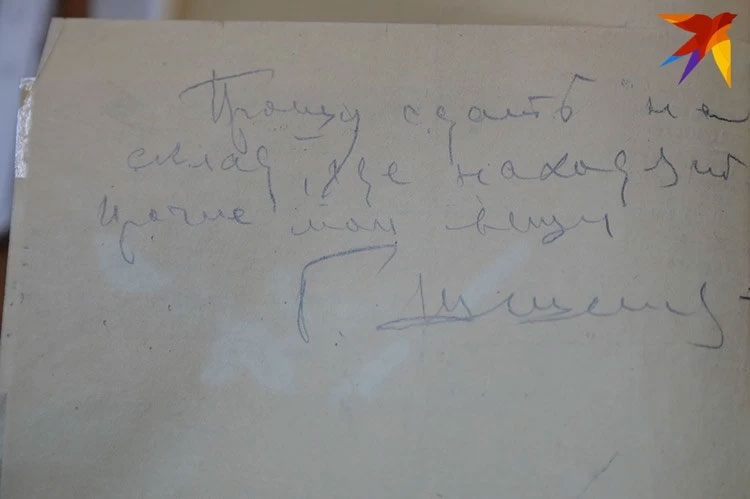 Прошу сдать на
склад, где находятся
прочие мои вещи
Г.